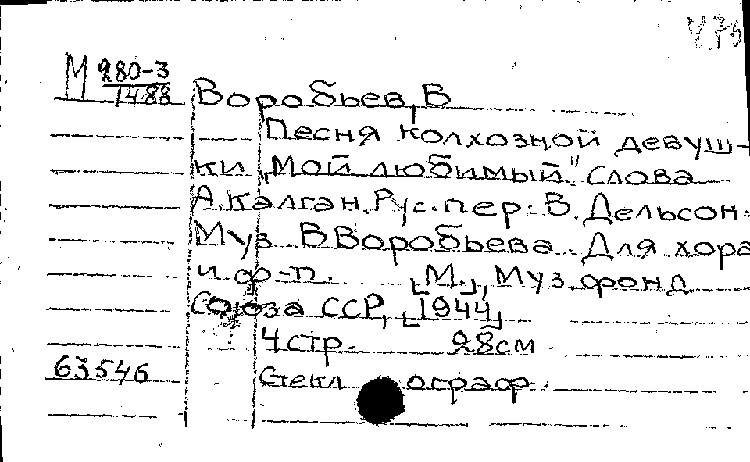 М 280-3
1488
Воробьев, В
Песня колхозной девуш-
ки „Мой любимый" Слова
А. Калган. Рус. пер. В. Дельсон.
Муз В Воробьева. Для хора
и ф-п. [М.], Муз. фонд
Союза ССР, [1944]
4 стр. 28 см
63546 Стеклограф.